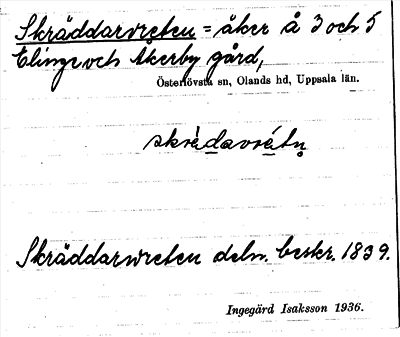 Skräddarvreten = åker å 3 och 5
Elinge och Åkerby gård,
Österlövsta sn, Olands hd, Uppsala län.
skrädavrétn
Skräddarwreten deln. beskr. 1839.
Ingegärd Isaksson 1936.